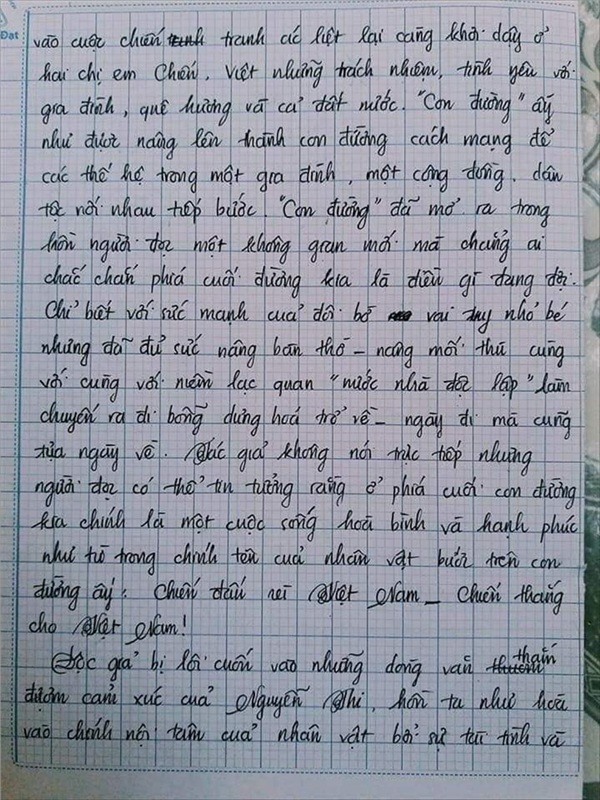 Đạt
vào cuộc chiến tranh ác liệt lại càng khơi dậy ở
hai chị em Chiến, Việt những trách nhiệm, tình yêu với
gia đình, quê hương và cả đất nước. "Con đường" ấy
như được nâng lên thành con đường cách mạng để
các thế hệ trong một gia đình, một cộng đồng, dân
tộc nối nhau tiếp bước. "Con đường" đã mở ra trong
hồn người đọc một không gian mới mà chẳng ai
chắc chắn phía cuối đường kia là điều gì đang đợi.
Chỉ biết với sức mạnh của đôi bờ vai tuy nhỏ bé
nhưng đã đủ sức nâng bàn thờ - nâng mối thù cùng
với cùng với niềm lạc quan "nước nhà độc lập" làm
chuyến ra đi bỗng dưng hoá trở về - ngày đi mà cũng
tựa ngày về. Tác giả không nói trực tiếp nhưng
người đọc có thể tin tưởng rằng ở phía cuối con đường
kia chính là một cuộc sống hoà bình và hạnh phúc
như từ trong chính tên của nhân vật bước trên con
đường ấy: Chiến đấu vì Việt Nam - Chiến thắng
cho Việt Nam!
Độc giả bị lôi cuốn vào những dòng văn thấm
đượm cảm xúc của Nguyễn Thi, hồn ta như hoà
vào chính nội tâm của nhân vật bởi sự tài tình và